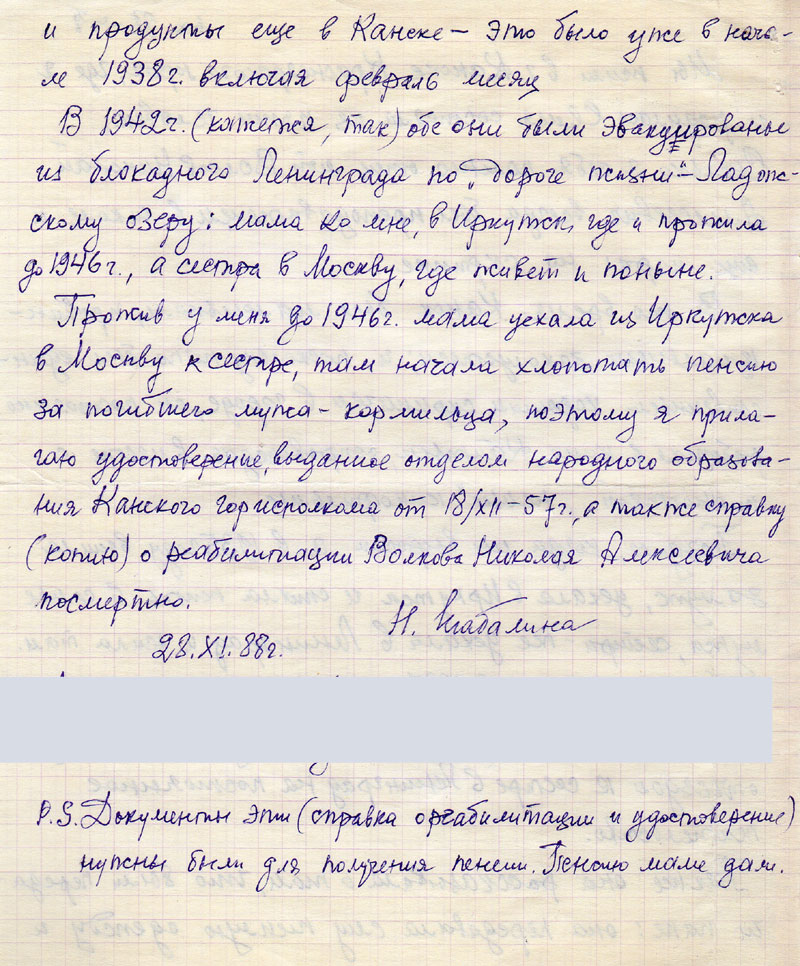 и продукты еще в Канске — это было уже в нача-
ле 1938г. включая февраль месяц
В 1942г. (кажется, так) обе они были эвакуированы
из блокадного Ленинграда по „дороге жизни" – Ладож-
скому озеру: мама ко мне, в Иркутск, где и прожила
до 1946г., а сестра в Москву, где живет и поныне.
Прожив у меня до 1946г. мама уехала из Иркутска
в Москву к сестре, там начала хлопотать пенсию
за погибшего мужа – кормильца, поэтому я прила-
гаю удостоверение, выданное отделом народного образова-
ния Канского горисполкома от 18/XII–57г., а также справку
(копию) о реабилитации Волкова Николая Алексеевича
посмертно.
Н.
28.XI.88г.
P.S. Документы эти (справка о реабилитации и удостоверение)
нужны были для получения пенсии. Пенсию маме дали.